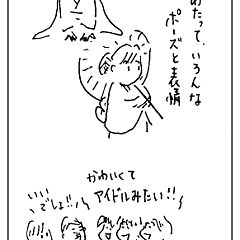 めたって、いろんな
ポーズと表情
かわいくて
アイドルみたい!!
いい
でしょ!!